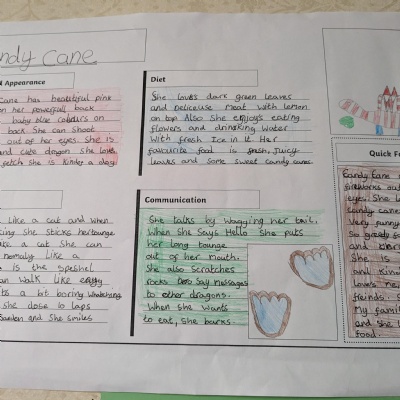 ndy Cane
Appearance
Cane has beautiful pink
on her powerfull back
baby blue colours on
back She can shoot
out of her eyes. She is
and cute dragon She loves
fetch She is kinder a dog
Diet
She loves dark green leaves
and deliceuse meat with lemon
on top Also She enjoy's eating
flowers and drinking water
With fresh Ice in it. Her
favourite food is fresh, juicy
leaves and some sweet candy canes.
Like a cat and when
king She sticks her tounge
ike a cat She can
normaly Like a
is the speshel
can walk like
its a bit boring
she dose 10 laps
garden and She smiles
Communication
She talks by Wagging her tail.
When She Says Hello She puts
her long tounge
out of her mouth.
She also Scratches
rocks to Say messages
to other dragons.
When she wants
to eat, she barks.
Quick F
Candy Cane
fireworks out
eyes. She
candy cane
Very funny
So greedy
and
She is
and kind
Loves
friends. S
My fami
and she L
food.